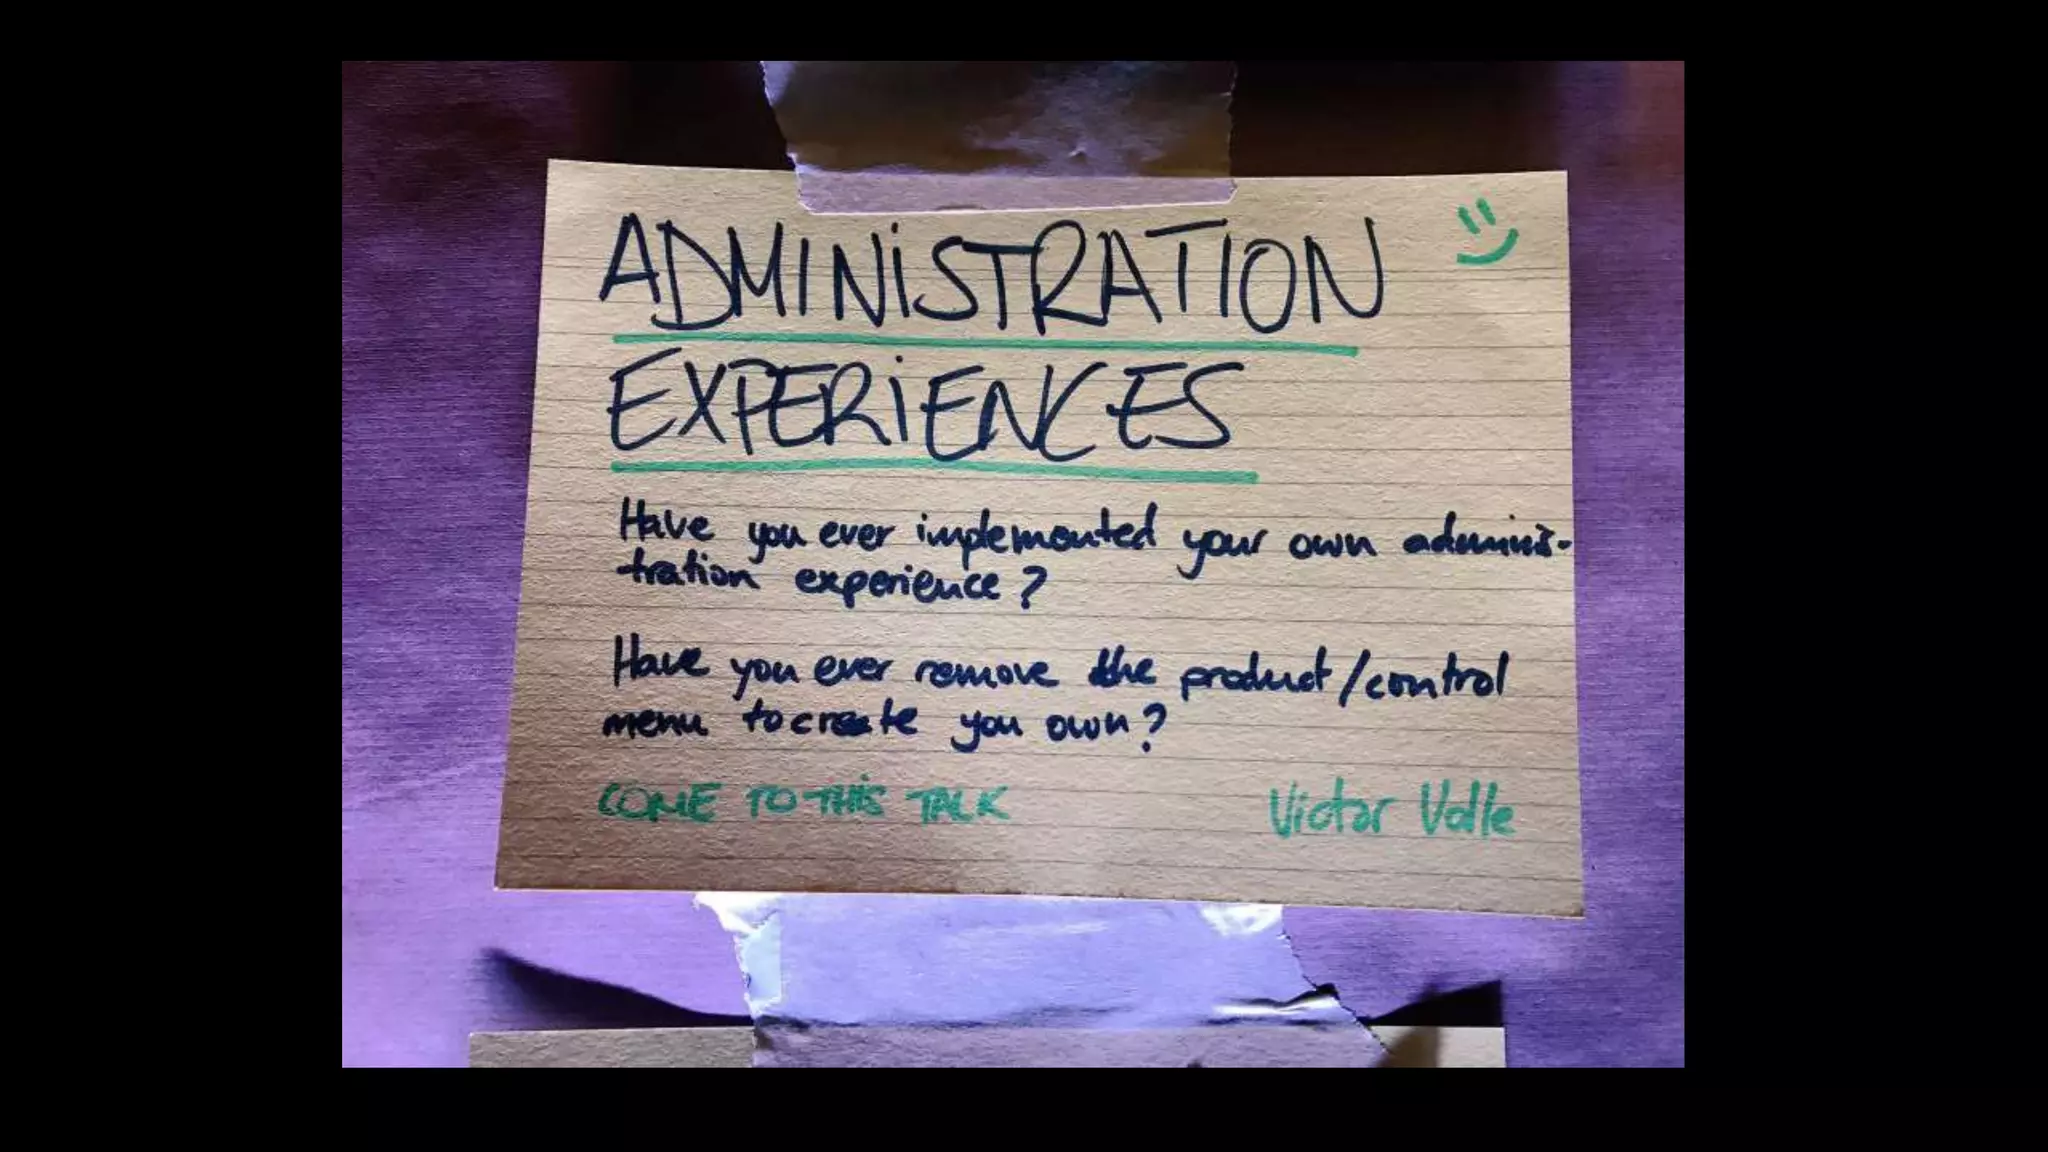 ADMINiSTRATION
EXPERiENCES
Have you ever implemented your own adminis-
tration experience?
Have you ever remove the product/control
menu to create you own?
COME TO THiS TALK
Victor Volle